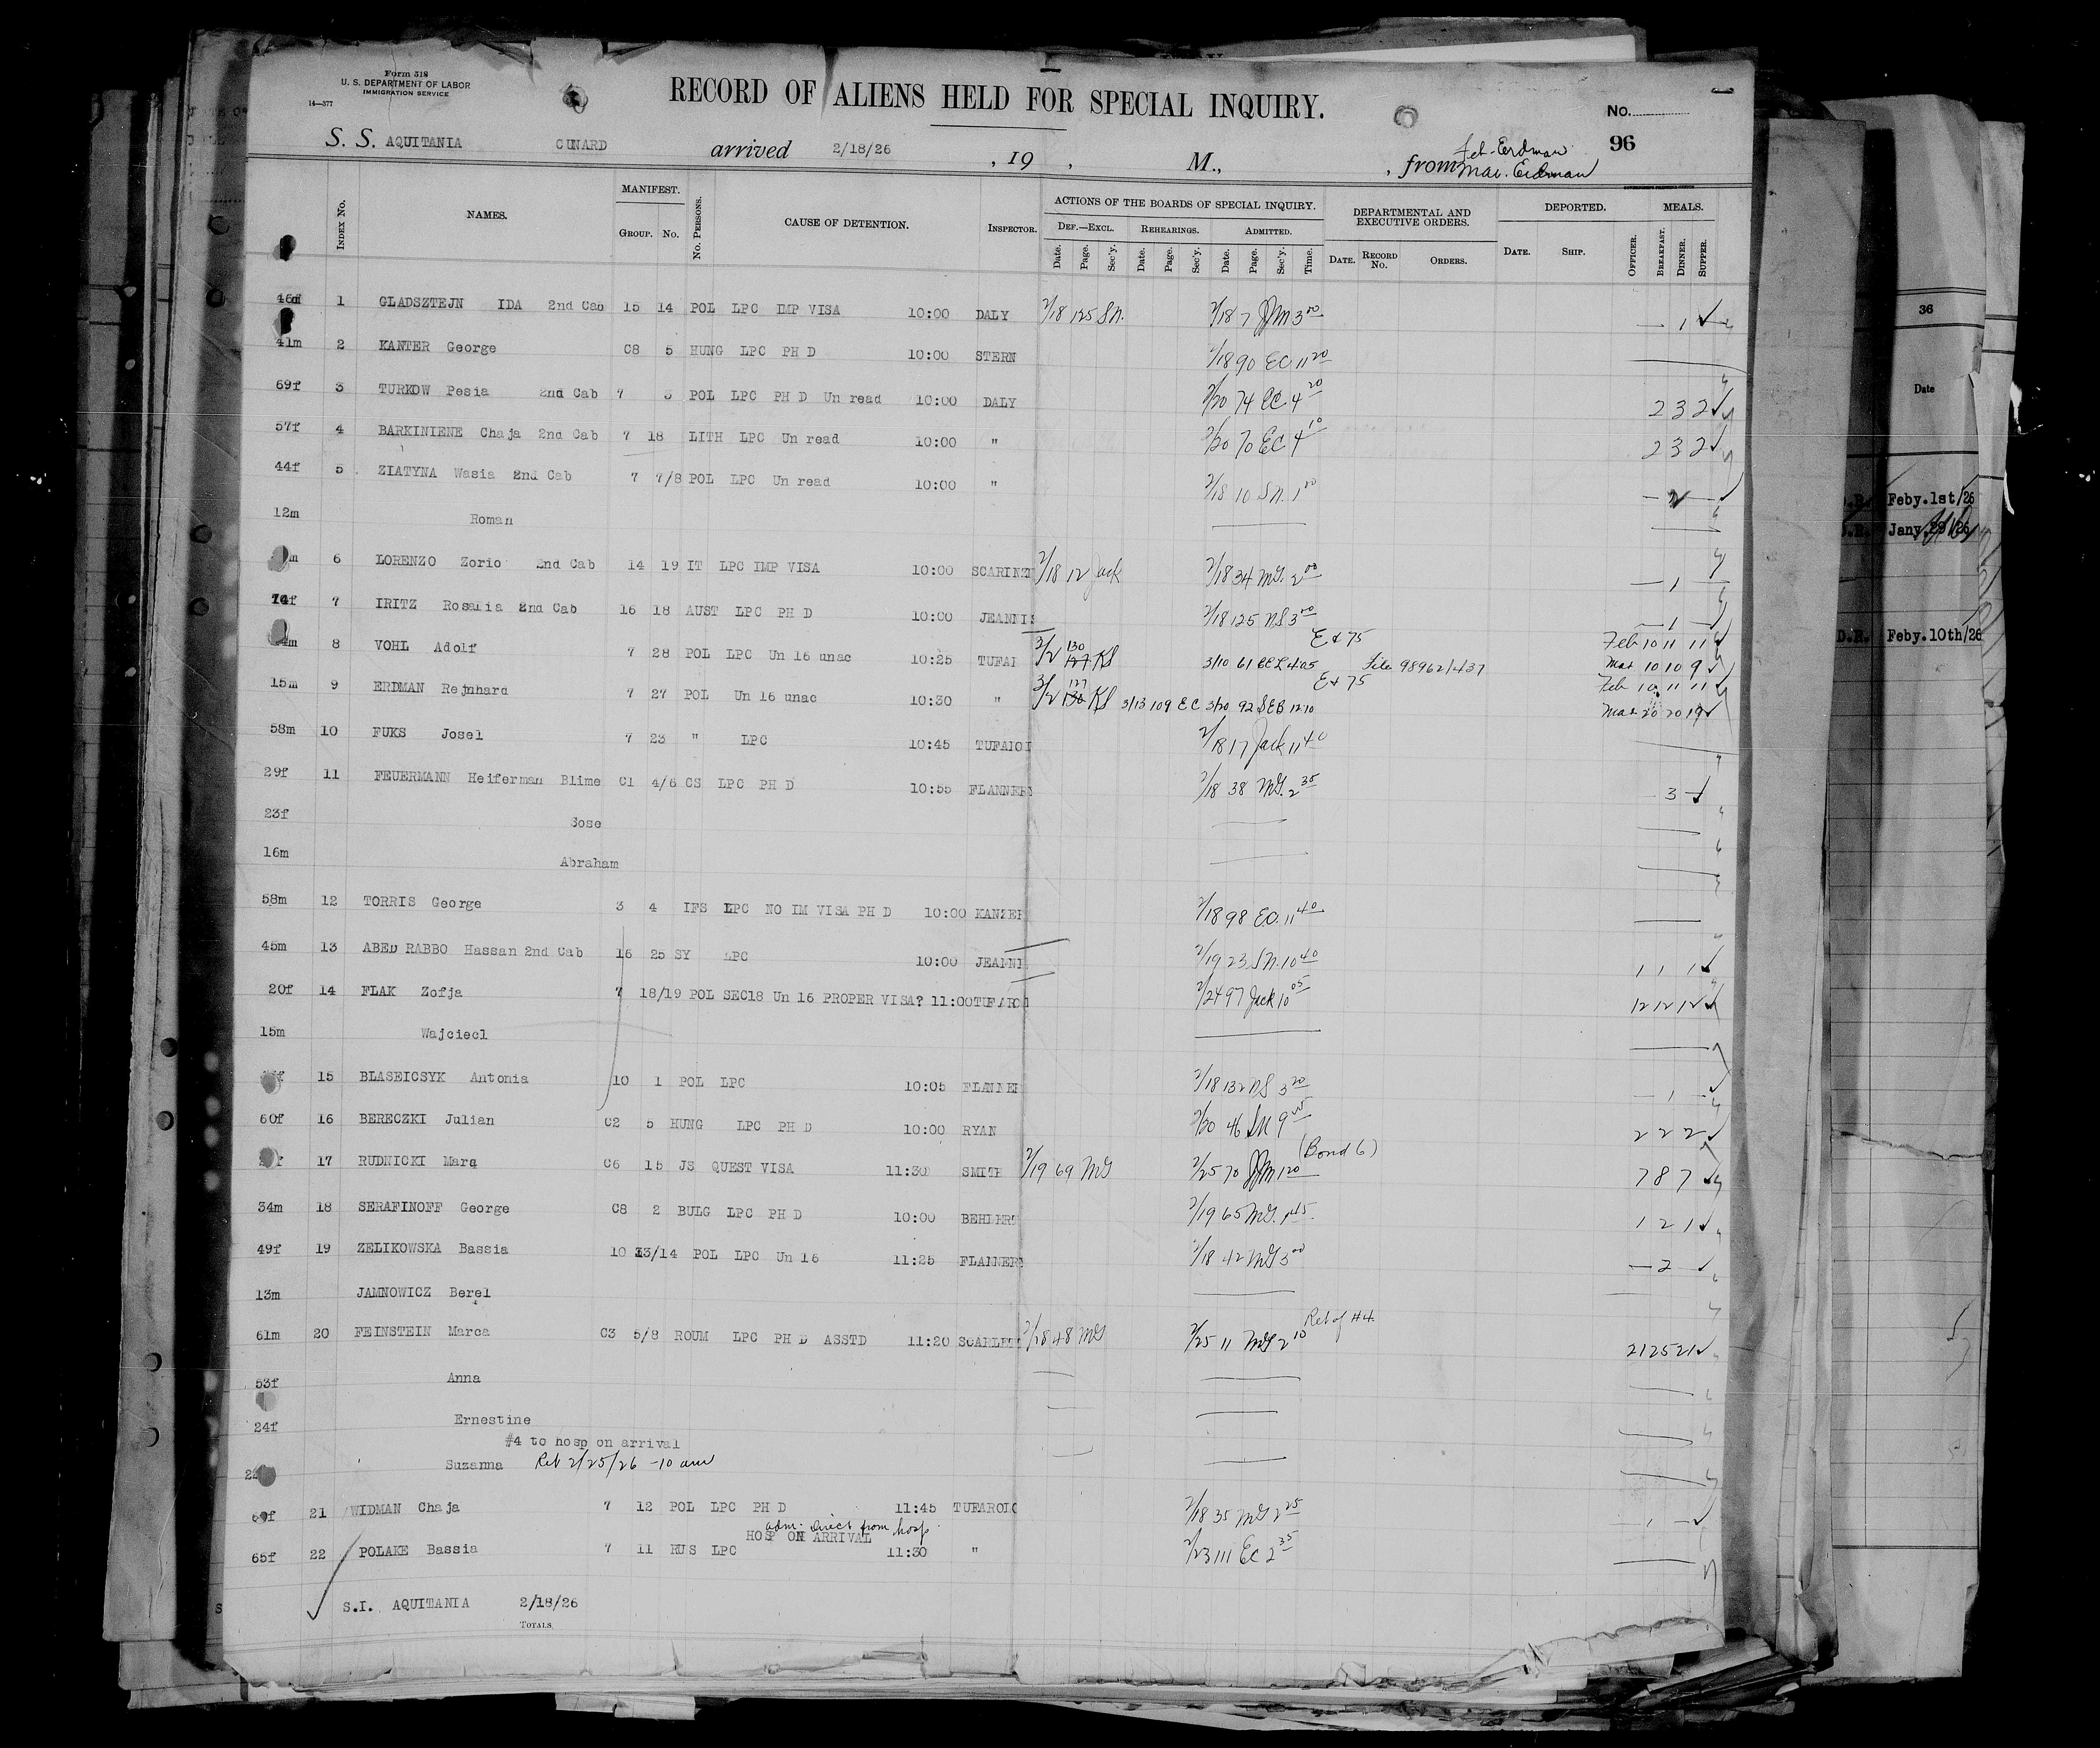 Form 318
U. S. DEPARTMENT OF LABOR
IMMIGRATION SERVICE
14—377
RECORD OF ALIENS HELD FOR SPECIAL INQUIRY.
No.
96
S. S. AQUITANIA CUNARD arrived 2/18/26 , 19 , M., , from
Feb-Erdman
Mar. Erdman
INDEX NO. NAMES. MANIFEST. GROUP. NO. NO. PERSONS. CAUSE OF DETENTION. INSPECTOR.
ACTIONS OF THE BOARDS OF SPECIAL INQUIRY.
DEF.—EXCL. REHEARINGS. ADMITTED.
Date. Page. Sec'y. Date. Page. Sec'y. Date. Page. Sec'y. Time.
DEPARTMENTAL AND EXECUTIVE ORDERS.
DATE. RECORD No. ORDERS.
DEPORTED.
DATE. SHIP. OFFICER.
MEALS.
BREAKFAST. DINNER. SUPPER.
1 GLADSZTEJN IDA 2nd Cab 15 14 POL LPC IMP VISA 10:00 DALY 2/18 125 SN. 2/18 7 JJM 3 00 — 1 —
41m 2 KANTER George C8 5 HUNG LPC PH D 10:00 STERN 2/18 90 EC 11 20
69f 3 TURKOW Pesia 2nd Cab 7 POL LPC PH D Un read 10:00 DALY 2/20 74 EC 4 20 2 3 2
57f 4 BARKINIENE Chaja 2nd Cab 7 18 LITH LPC Un read 10:00 " 2/20 70 EC 4 10 2 3 2
44f 5 ZIATYNA Wasia 2nd Cab 7 7/8 POL LPC Un read 10:00 " 2/18 10 SN. 1 00 — 2 —
12m Roman
6 LORENZO Zorio 2nd Cab 14 19 IT LPC IMP VISA 10:00 2/18 12 Jack 2/18 34 MG. 2 00 — 1 —
7 IRITZ Rosalia 2nd Cab 16 18 AUST LPC PH D 10:00 JEANNIS 2/18 125 NS 3 00 — 1 —
8 VOHL Adolf 7 28 POL LPC Un 16 unac 10:25 TUFA 3/2 130 127 KS 3/10 61 ECL 4 05 Ex 75 File 98962/437 Feb 10 11 11
Mar 10 10 9
15m 9 ERDMAN Rejnhard 7 27 POL Un 16 unac 10:30 " 3/2 127 130 KS 3/13 109 EC 3/20 92 SEB 12 10 Ex 75 Feb 10 11 11
Mar 20 20 19
58m 10 FUKS Josel 7 23 " LPC 10:45 2/18 17 Jack 11 40
29f 11 FEUERMANN Heiferman Blime C1 4/6 CS LPC PH D 10:55 FLANNERY 2/18 38 MG. 2 35 3
23f Sose
16m Abraham
58m 12 TORRIS George 3 4 IFS LPC NO IM VISA PH D 10:00 KANZER 2/18 98 EC. 11 40
45m 13 ABED RABBO Hassan 2nd Cab 16 25 SY LPC 10:00 JEANNI 2/19 23 SN. 10 40 1 1 1
20f 14 FLAK Zofja 7 18/19 POL SEC18 Un 16 PROPER VISA? 11:00 TUFARO 2/24 97 Jack 10 05 12 12 12
15m Wajciecl
15 BLASEICSYK Antonia 10 1 POL LPC 10:05 FLANNER 2/18 132 NS 3 20 — 1 —
60f 16 BERECZKI Julian C2 5 HUNG LPC PH D 10:00 RYAN 2/20 46 SN 9 2 2 2
17 RUDNICKI Mara C6 15 JS QUEST VISA 11:30 SMITH 2/19 69 MG 2/25 70 JJM 1 20 (Bond 6) 7 8 7
34m 18 SERAFINOFF George C8 2 BULG LPC PH D 10:00 BEHLERT 2/19 65 MG. 1 45 1 2 1
49f 19 ZELIKOWSKA Bassia 10 13/14 POL LPC Un 16 11:25 FLANNERY 2/18 42 MG 3 00 — 2
13m JAMNOWICZ Berel
61m 20 FEINSTEIN Marca C3 5/8 ROUM LPC PH D ASSTD 11:20 SCARLETT 2/18 48 MG 2/25 11 MG 2 10 Rel of #4 21 25 21
53f Anna
24f Ernestine
#4 to hosp on arrival
Suzanna Ret 2/25/26 -10 am
21 WIDMAN Chaja 7 12 POL LPC PH D 11:45 TUFAROLO 2/18 35 MG 2 25 — 1 —
adm. direct from hosp.
HOSP ON ARRIVAL
65f 22 POLAKE Bassia 7 11 RUS LPC 11:30 " 2/23 111 EC 2 35
S.I. AQUITANIA 2/18/26
TOTALS
36
Date
Feby.1st/26
Jany.29/26
D.R. Feby.10th/26